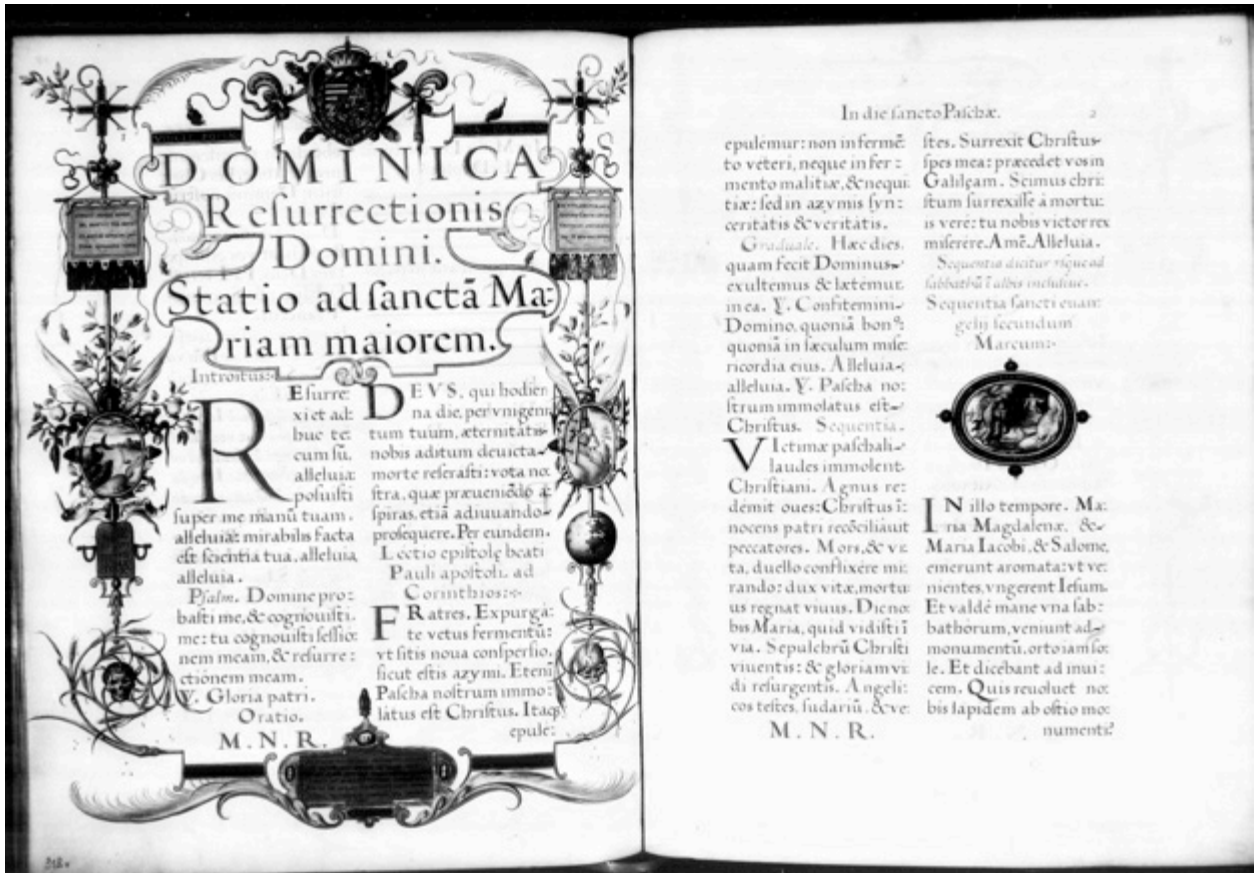 DOMINICA
Reſurrectionis
Domini.
Statio ad ſanctã Ma-
riam maiorem.
Introitus:
REſurre-
xi et ad-
huc te-
cum ſũ,
alleluia:
poſuiſti
ſuper me manũ tuam.
alleluia: mirabilis facta
eſt ſcientia tua, alleluia
alleluia.
Pſalm. Domine pro-
baſti me, & cognouiſti.
me: tu cognouiſti ſeſſio-
nem meam, & reſurre-
ctiónem meam.
℣. Gloria patri.
Oratio.
M. N. R.
DEVS, qui hodier
na die, per vnigeni
tum tuum, æternitatis
nobis aditum deuicta
morte reſeraſti: vota no
ſtra, quæ præueniẽdo a-
ſpiras, etiã adiuuando
proſequere. Per eundem.
Lectio epiſtolę beati
Pauli apoſtoli. ad
Corinthios:
FRatres. Expurga-
te vetus fermentũ:
vt ſitis noua conſperſio,
ſicut eſtis azymi. Eteni
Paſcha noſtrum immo-
látus eſt Chriſtus. Itaq
epule-
218.
In die ſancto Paſchæ. 2
epulemur: non in fermẽ
to veteri, neque in fer-
mento malitiæ, & nequi
tiæ: ſed in azymis ſyn-
ceritatis & veritatis.
Graduale. Hæc dies.
quam fecit Dominus
exultemus & lætémur.
in ea. ℣. Confitemini
Domino, quoniã bonꝰ:
quoniã in ſæculum miſe-
ricordia eius. Alleluia.
alleluia. ℣. Paſcha no-
ſtrum immolatus eſt
Chriſtus. Sequentia.
VIctimæ paſchali
laudes immolent.
Chriſtiani. Agnus re-
démit oues: Chriſtus ĩ-
nocens patri recõciliáuit
peccatores. Mors, & vi-
ta, duello conflixére mi-
rando: dux vitæ, mortu
us regnat viuus. Dic no-
bis Maria, quid vidiſti ĩ
via. Sepulchrũ Chriſti
viuentis: & gloriam vi-
di reſurgentis. Angeli-
cos teſtes, ſudariũ, & ve-
M. N. R.
ſtes. Surrexit Chriſtus
ſpes mea: præcedet vos in
Galilęam. Scimus chri-
ſtum ſurrexiſſe à mortu-
is verè: tu nobis victor rex
miſerére. Amẽ. Alleluia.
Sequentia dicitur vſque ad
ſabbathũ ĩ albis incluſiue.
Sequentia ſancti euan-
gelij ſecundum
Marcum:
IN illo tempore. Ma-
ria Magdalenæ, &
Maria Iacobi, & Salome,
emerunt aromata: vt ve-
nientes, vngerent Ieſum.
Et valdé mane vna ſab-
bathorum, veniunt ad
monumentũ, orto iam ſo-
le. Et dicebant ad inui-
cem. Quis reuoluet no-
bis lapidem ab oſtio mo-
numenti?